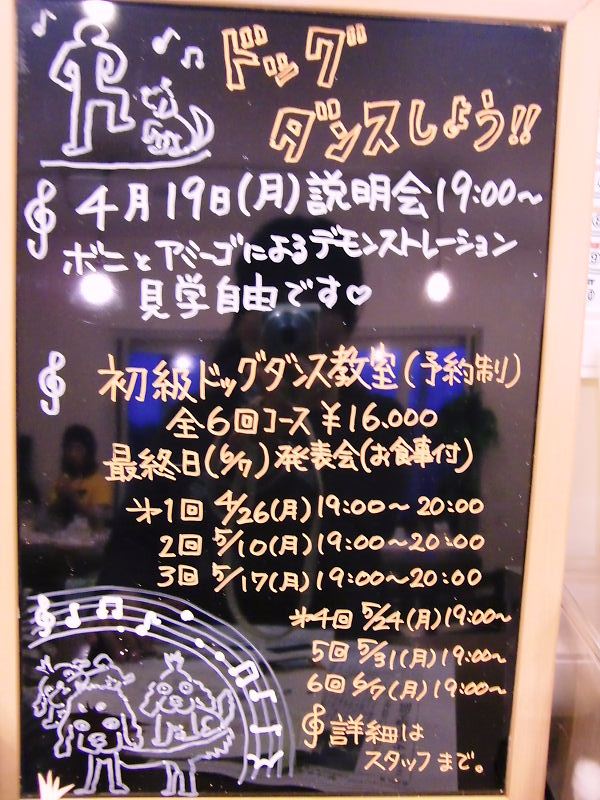 ドッグ
ダンスしよう!!
4月19日(月)説明会19:00~
ボニとアミーゴによるデモンストレーション
見学自由です♡
初級ドッグダンス教室(予約制)
全6回コース ¥16.000
最終日(6/7)発表会(お食事付)
*1回 4/26(月)19:00~20:00
2回 5/10(月)19:00~20:00
3回 5/17(月)19:00~20:00
*4回 5/24(月)19:00~
5回 5/31(月)19:00~
6回 6/7(月)19:00~
詳細は
スタッフまで。